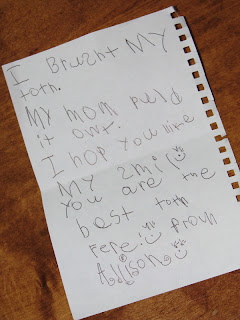 I Brusht MY
toth.
MY mom puld
it owt.
I hop you like
MY smi
you are the
best toth
Fere froun
Allison